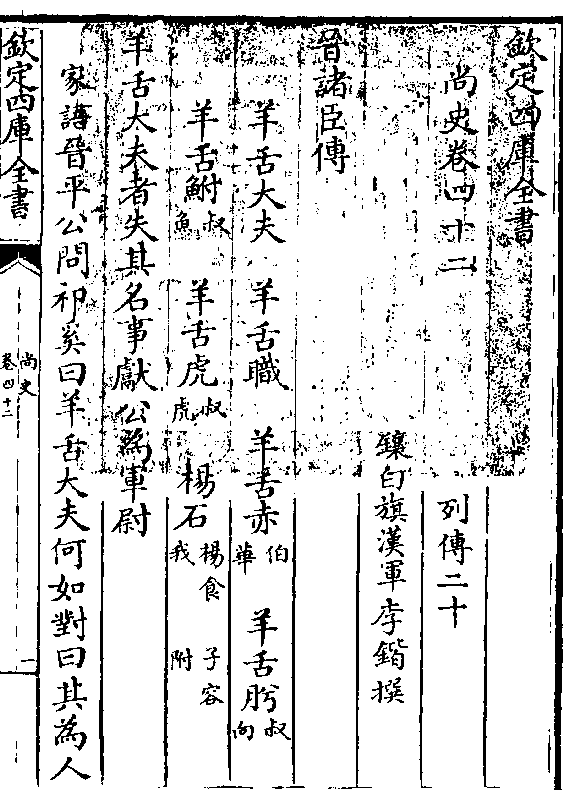 欽定四庫全書
尚史卷四十二　列傳二十
鑲白旗漢軍李鍇撰
晉諸臣傳
羊舌大夫　羊舌職　羊舌赤伯華　羊舌肸叔向
羊舌鮒叔魚　羊舌虎叔虎　楊石楊食我　子容附
羊舌大夫者失其名事獻公為軍尉
家語晉平公問祁奚曰羊舌大夫何如對曰其為人
欽定四庫全書
尚史
卷四十二
一